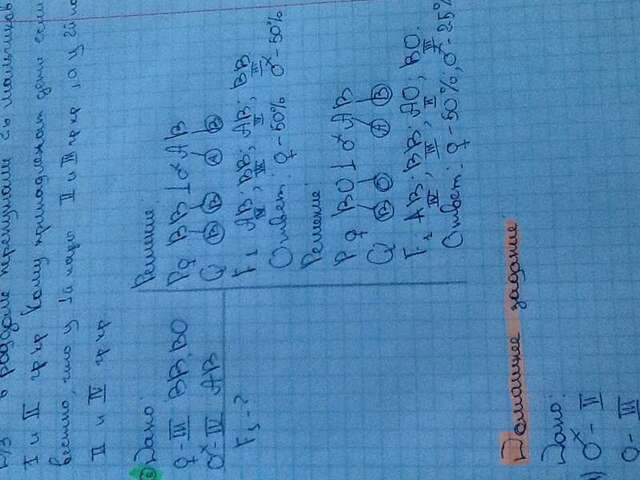 в роддоме перепутали 2х мальчиков
I и II гр кр Кому принадлежат дети если
вестно, что у 1й пары II и III гр кр, а у 2й па
II и IV гр кр
Дано:
♀-III BB; BO
♂-IV AB
F1-?
Решение:
P♀ BB ⊥ ♂ AB
G B B A B
F1 AB; BB; AB; BB
IV III II III
Ответ: ♀-50% ♂-50%
Решение
P♀ BO ⊥ ♂ AB
G B O A B
F1 AB; BB; AO; BO.
IV III II III
Ответ: ♀-50%, ♂-25%
Домашнее задание:
Дано:
♂-II
♀-III